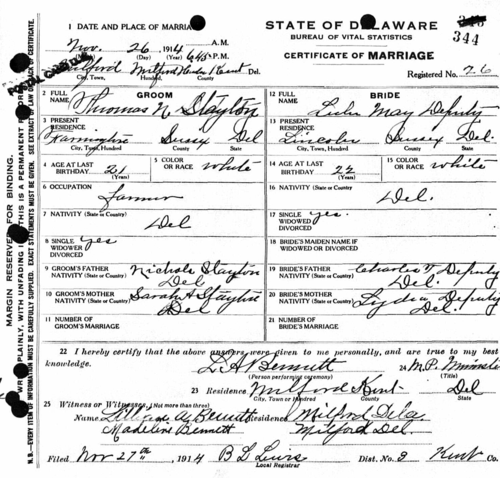 STATE OF DELAWARE
BUREAU OF VITAL STATISTICS
344
CERTIFICATE OF MARRIAGE
Registered No. 26
1 DATE AND PLACE OF MARRIAGE
Nov. 26 1914 645 A.M. P.M.
(Month) (Day) (Year)
Milford Milford Hundred Kent Del.
City, Town, Hundred. County
MARGIN RESERVED FOR BINDING.
WRITE PLAINLY, WITH UNFADING INK—THIS IS A PERMANENT RECORD
N.B.—EVERY ITEM OF INFORMATION MUST BE CAREFULLY SUPPLIED. EXACT STATEMENTS MUST BE GIVEN. SEE EXTRACT OF LAW ON BACK OF CERTIFICATE.
GROOM
2 FULL NAME Thomas N. Stayton
3 PRESENT RESIDENCE Farmington Sussex Del
City, Town, Hundred County State
4 AGE AT LAST BIRTHDAY 21 (Years)
5 COLOR OR RACE white
6 OCCUPATION farmer
7 NATIVITY (State or Country) Del
8 SINGLE WIDOWED DIVORCED yes
9 GROOM'S FATHER Nichols Stayton
NATIVITY (State or Country) Del
10 GROOM'S MOTHER Sarah A Stayton
NATIVITY (State or Country) Del
11 NUMBER OF GROOM'S MARRIAGE
BRIDE
12 FULL NAME May Deputy
13 PRESENT RESIDENCE Lincoln Sussex Del.
City, Town, Hundred County State
14 AGE AT LAST BIRTHDAY 22 (Years)
15 COLOR OR RACE white
16 NATIVITY (State or Country)
Del.
17 SINGLE WIDOWED DIVORCED yes.
18 BRIDE'S MAIDEN NAME IF WIDOWED OR DIVORCED
19 BRIDE'S FATHER Charles T. Deputy
NATIVITY (State or Country) Del
20 BRIDE'S MOTHER Lydia Deputy
NATIVITY (State or Country) Del
21 NUMBER OF BRIDE'S MARRIAGE
22 I hereby certify that the above answers were given to me personally, and are true to my best
knowledge. L A Bennett 24 M.P. Minister
(Person performing ceremony)
23 Residence Milford Kent Del
City, Town or Hundred County State
25 Witness or Witnesses, (Not more than three)
Name Lillian A. Bennett Residence Milford Dela
Madeline Bennett Milford Del.
Filed Nov 27th, 1914 B L Lewis Dist. No. 3 Kent Co.
Local Registrar